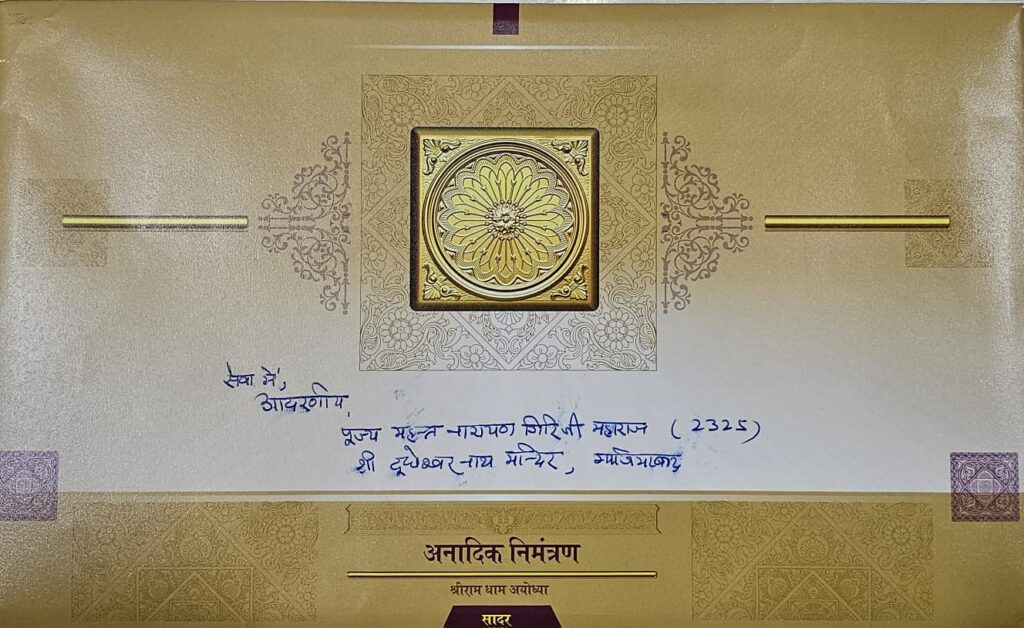 सेवा में,
आदरणीय,
पूज्य महन्त नारायण गिरि जी महाराज ( 2325 )
श्री दूधेश्वर नाथ मन्दिर, गाजियाबाद
अनादिक निमंत्रण
श्रीराम धाम अयोध्या
सादर